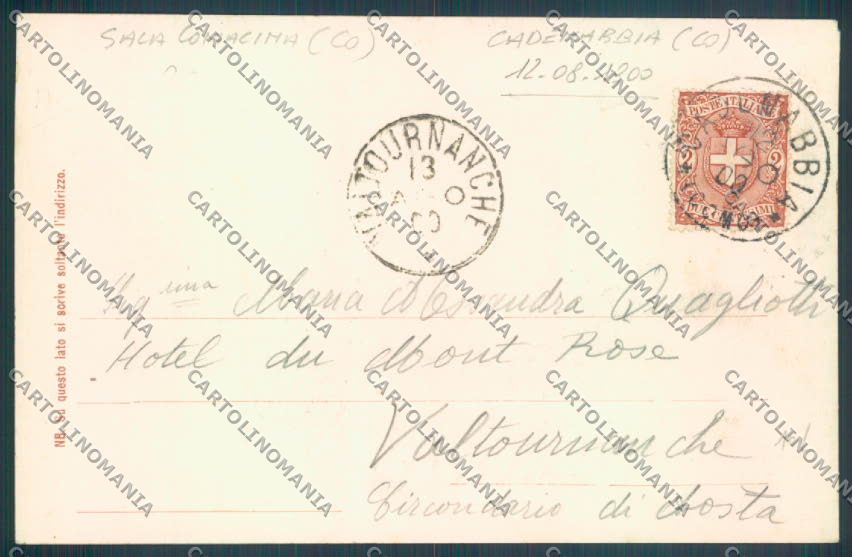 SALA COMACINA (CO)
CADENABBIA (CO)
12.08.1900
POSTE ITALIANE
2 2
VALTOURNANCHE
13
00
NABBIA
COMO
NB. Su questo lato si scrive soltanto l'indirizzo.
Maria Alessandra Quagliotti
Hotel du Mont Rose
Valtournanche
Circondario di Aosta
CARTOLINOMANIA